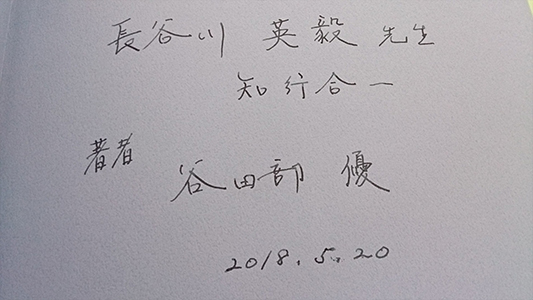 長谷川 英毅 先生
知行合一
著者
谷田部 優
2018.5.20